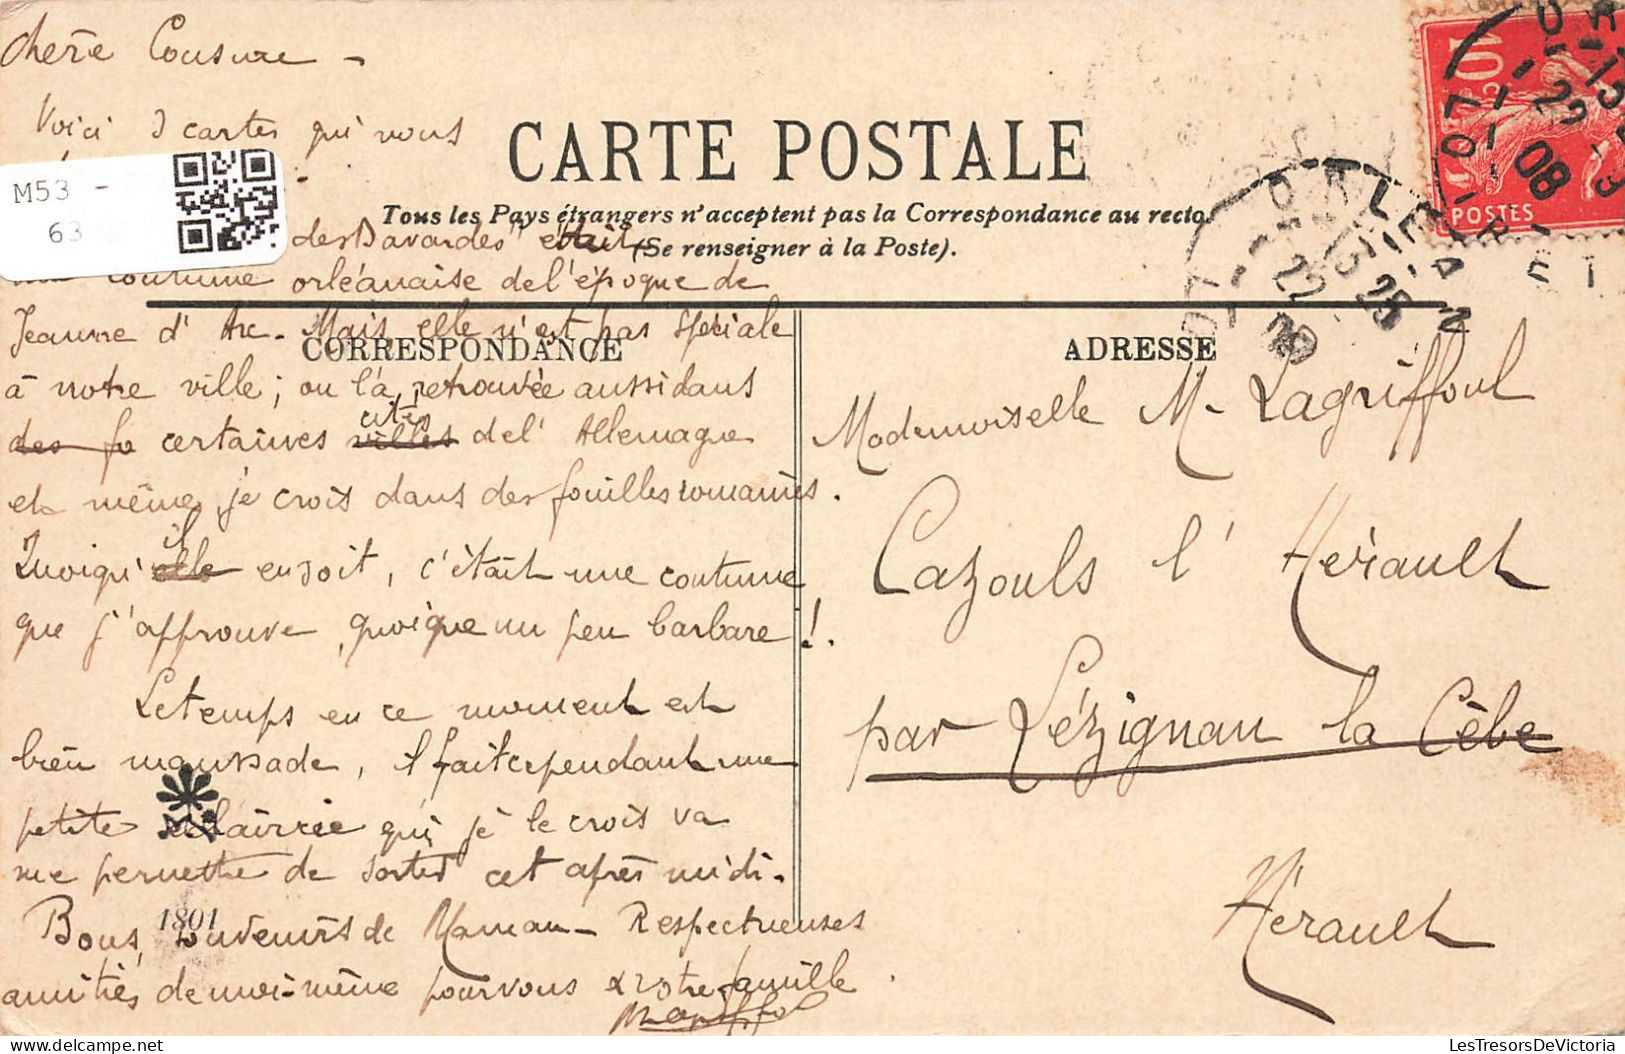 Chère Cousine -
Voici 3 cartes qui vous
M53 -
63
CARTE POSTALE
Tous les Pays étrangers n'acceptent pas la Correspondance au recto.
(Se renseigner à la Poste).
des Bavardes" était
une coutume orléanaise de l'époque de
Jeanne d'Arc. Mais elle n'est pas spéciale
à notre ville ; on l'a retrouvée aussi dans
certaines cités de l'Allemagne
et même, je crois dans des fouilles romaines.
Quoiqu'il en soit, c'était une coutume
que j'approuve, quoique un peu barbare !.
Le temps en ce moment est
bien maussade, il fait cependant une
petite éclaircie qui je le crois va
me permettre de sortir cet après midi.
Bons souvenirs de Maman - Respectueuses
amitiés de moi-même pour vous & votre famille.
CORRESPONDANCE
1801
ADRESSE
Mademoiselle M. Lagriffoul
Cazouls l'Hérault
par Lézignan la Cèbe
Hérault
10c
POSTES
ORLEANS
LOIRET
15 25
22 - 1
08
LesTresorsDeVictoria